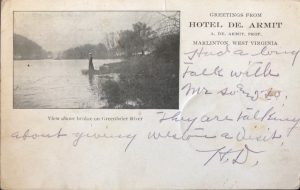 GREETINGS FROM
HOTEL DE. ARMIT
A. DE. ARMIT, PROP.
MARLINTON, WEST VIRGINIA
Had a long
talk with
Mr
They are talking
about giving a visit.
H.D.
View above bridge on Greenbrier River